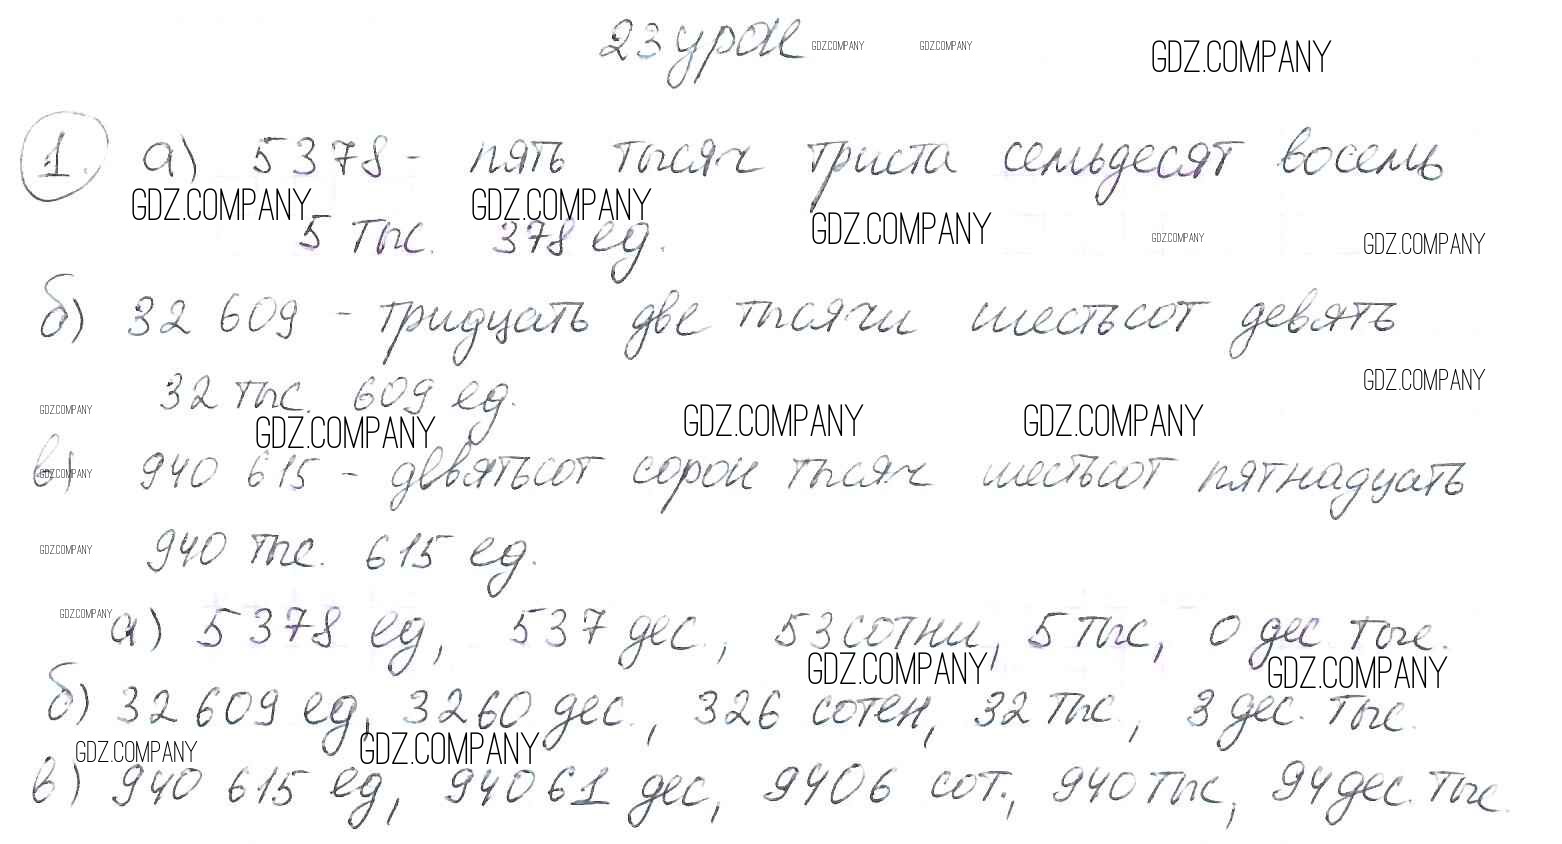 23 урок GDZ.COMPANY GDZ.COMPANY GDZ.COMPANY
1. а) 5378 - пять тысяч триста семьдесят восемь
GDZ.COMPANY GDZ.COMPANY GDZ.COMPANY GDZ.COMPANY GDZ.COMPANY
5 тыс. 378 ед.
б) 32 609 - тридцать две тысячи шестьсот девять
GDZ.COMPANY
32 тыс. 609 ед.
GDZ.COMPANY GDZ.COMPANY GDZ.COMPANY GDZ.COMPANY
в) 940 615 - девятьсот сорок тысяч шестьсот пятнадцать
GDZ.COMPANY
940 тыс. 615 ед.
GDZ.COMPANY
GDZ.COMPANY
а) 5378 ед, 537 дес., 53 сотни, 5 тыс, 0 дес. тыс.
GDZ.COMPANY GDZ.COMPANY
б) 32 609 ед, 3260 дес., 326 сотен, 32 тыс., 3 дес. тыс.
GDZ.COMPANY GDZ.COMPANY
в) 940 615 ед, 94061 дес, 9406 сот., 940 тыс, 94 дес. тыс.